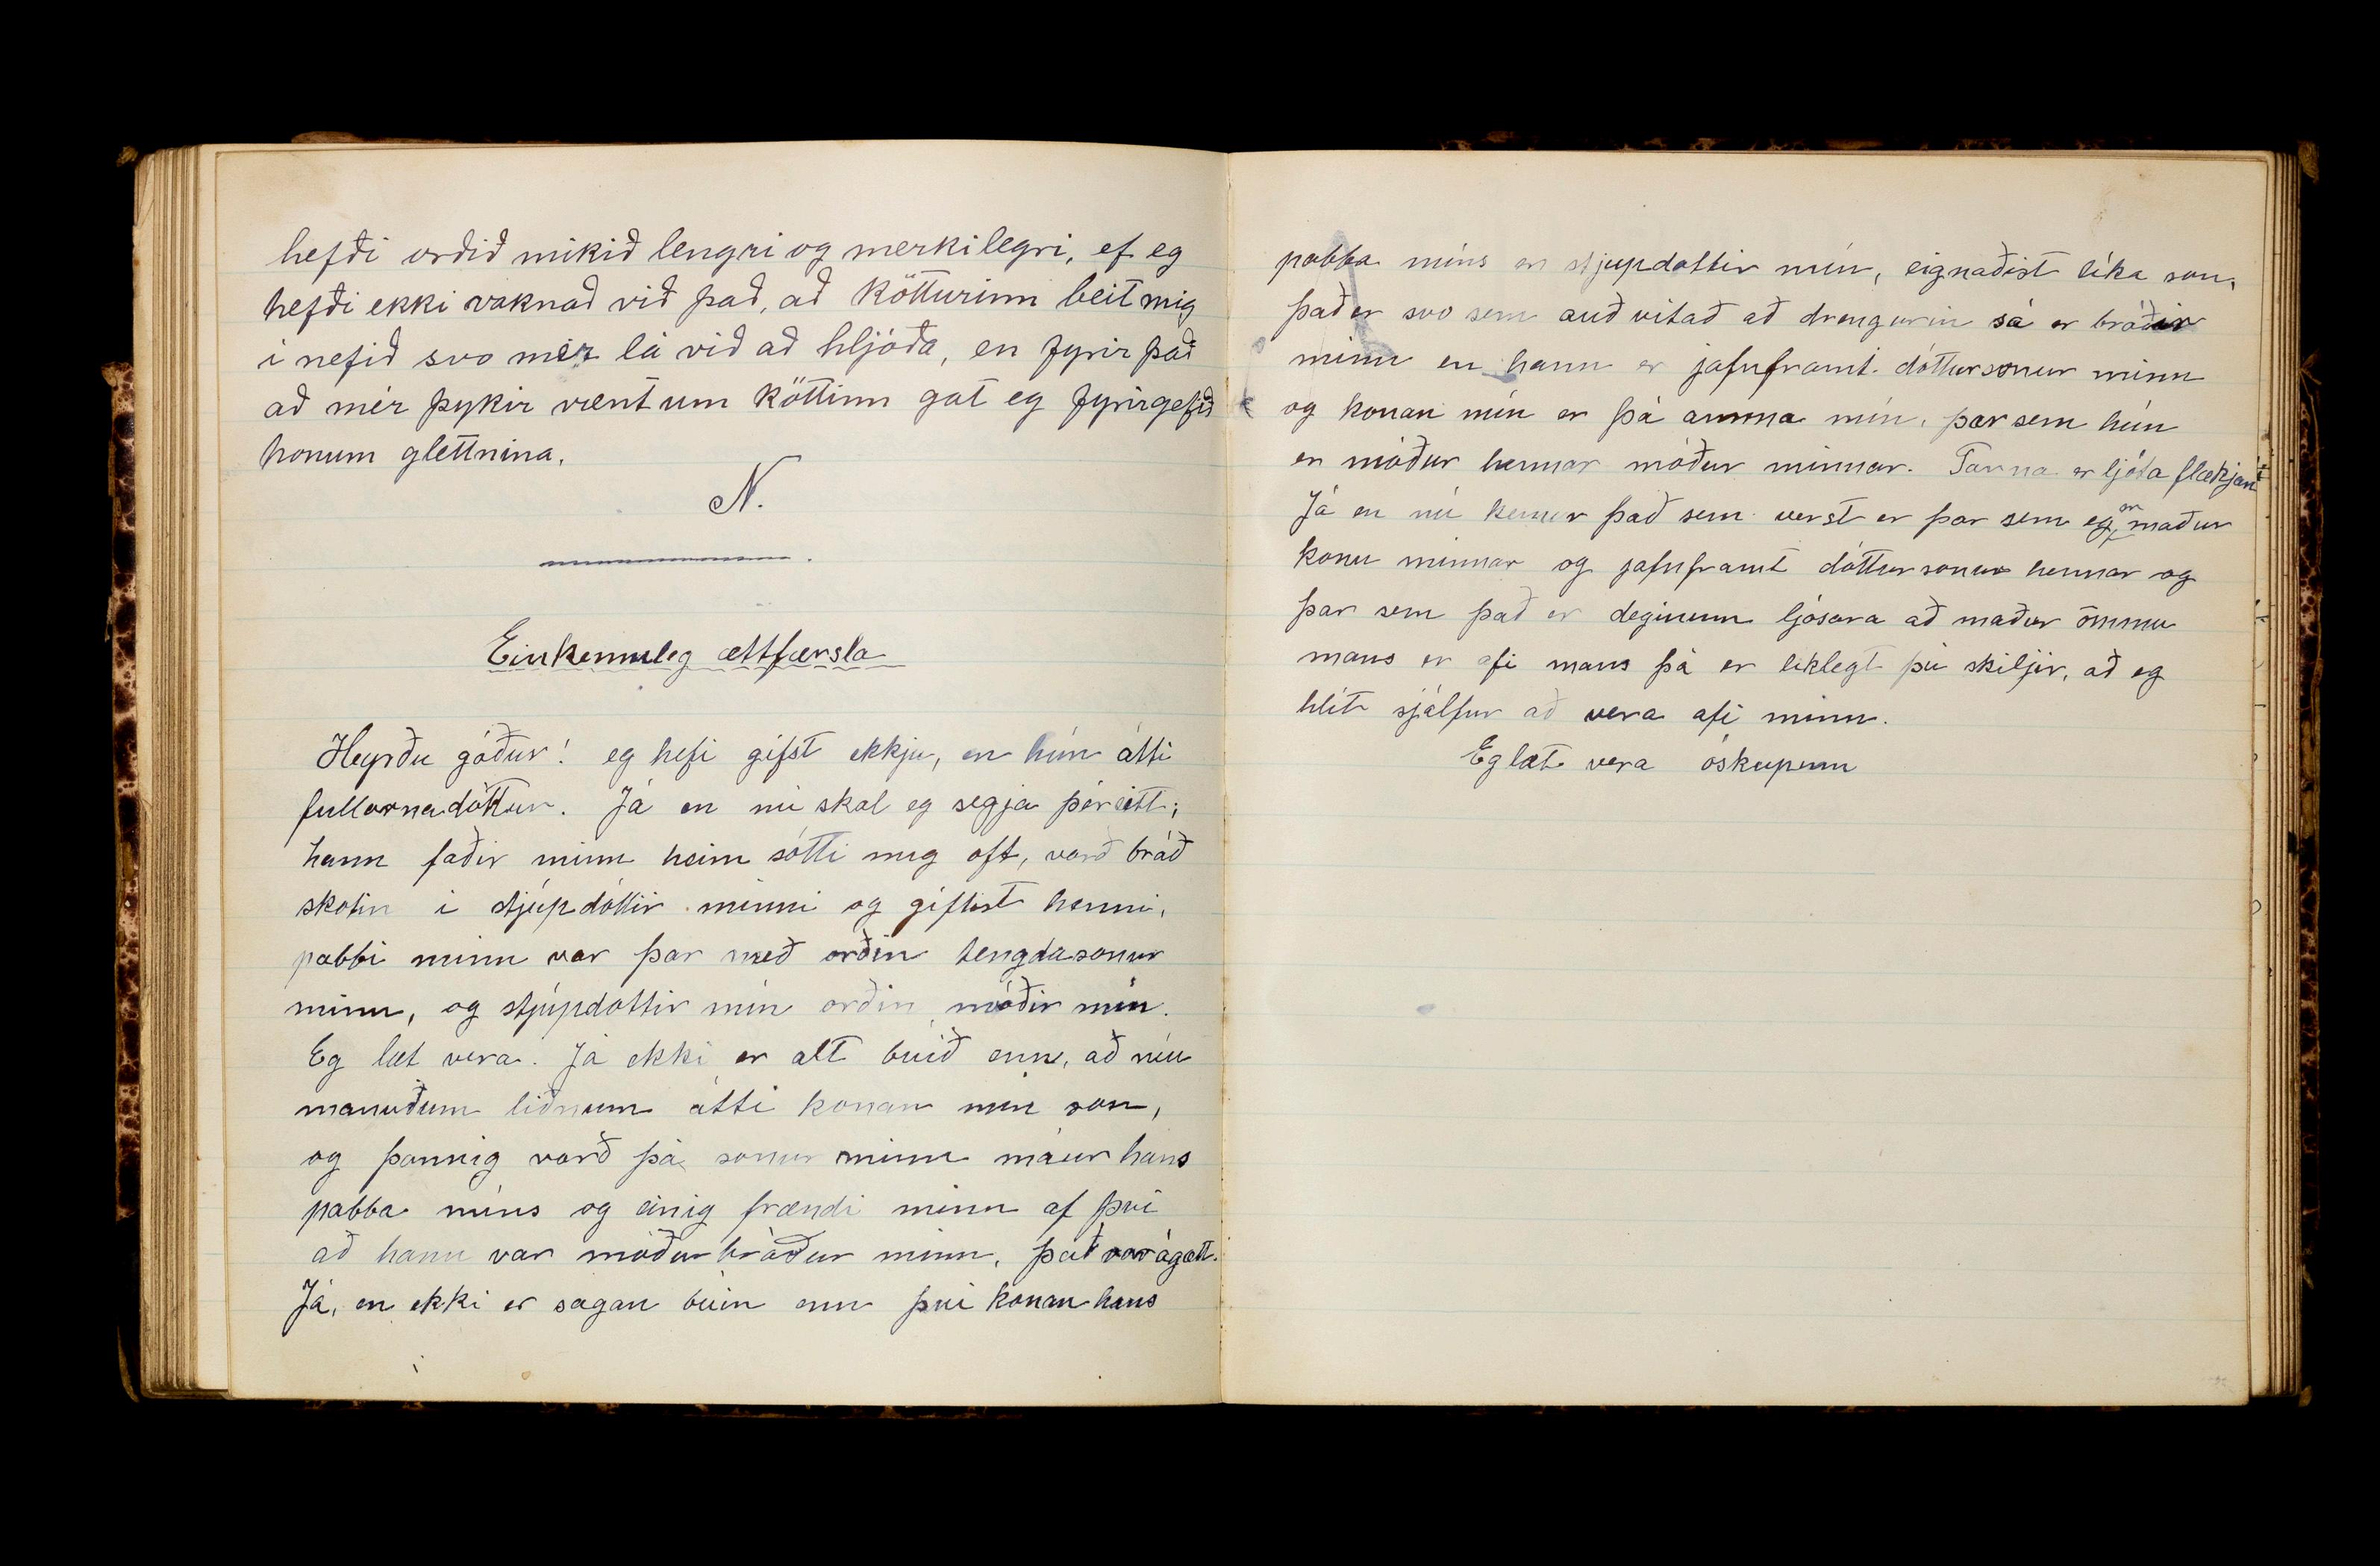 hefði orðið mikið lengri og merkilegri, ef eg
hefði ekki vaknað við það, að kötturinn beit mig
i nefið svo mér lá við að hljóða, en fyrir það
að mér þykir vænt um köttinn gat eg fyrirgefið
honum glettnina.
N.
Einkennileg ættfærsla
Heyrðu góður! eg hefi gifst ekkju, en hún átti
fullorna dóttur. Já en nú skal eg segja þér eitt;
hann faðir minn heim sótti mig oft, varð bráð
skotin i stjúpdóttir minni og giftist henni,
pabbi minn var þar með orðin tengdasonur
minn, og stjúpdottir mín orðin móðir mín.
Eg læt vera. Já ekki er alt búið enn, að níu
manuðum liðnum átti konan mín son,
og þannig varð þá sonur minn máur hans
pabba míns og einig frændi minn af því
að hann var móður bróður minn, það var ágætt.
Já, en ekki er sagan búin enn því konan hans
pabba míns en stjupdottir mín, eignaðist líka son,
það er svo sem auð vitað að drengurin sá er bróðir
minn en hann er jafnframt dóttursonur minn
og konan mín er þá amma mín, þar sem hún
er móður hennar móður minnar. Tarna er ljóta flækjan
Já en nú kemur það sem verst er þar sem eg er maður
konu minnar og jafnframt dóttursonur hennar og
þar sem það er deginum ljósara að maður ömmu
mans er afi mans þá er liklegt þú skiljir, að eg
hlít sjálfur að vera afi minn.
Eg læt vera óskupenn